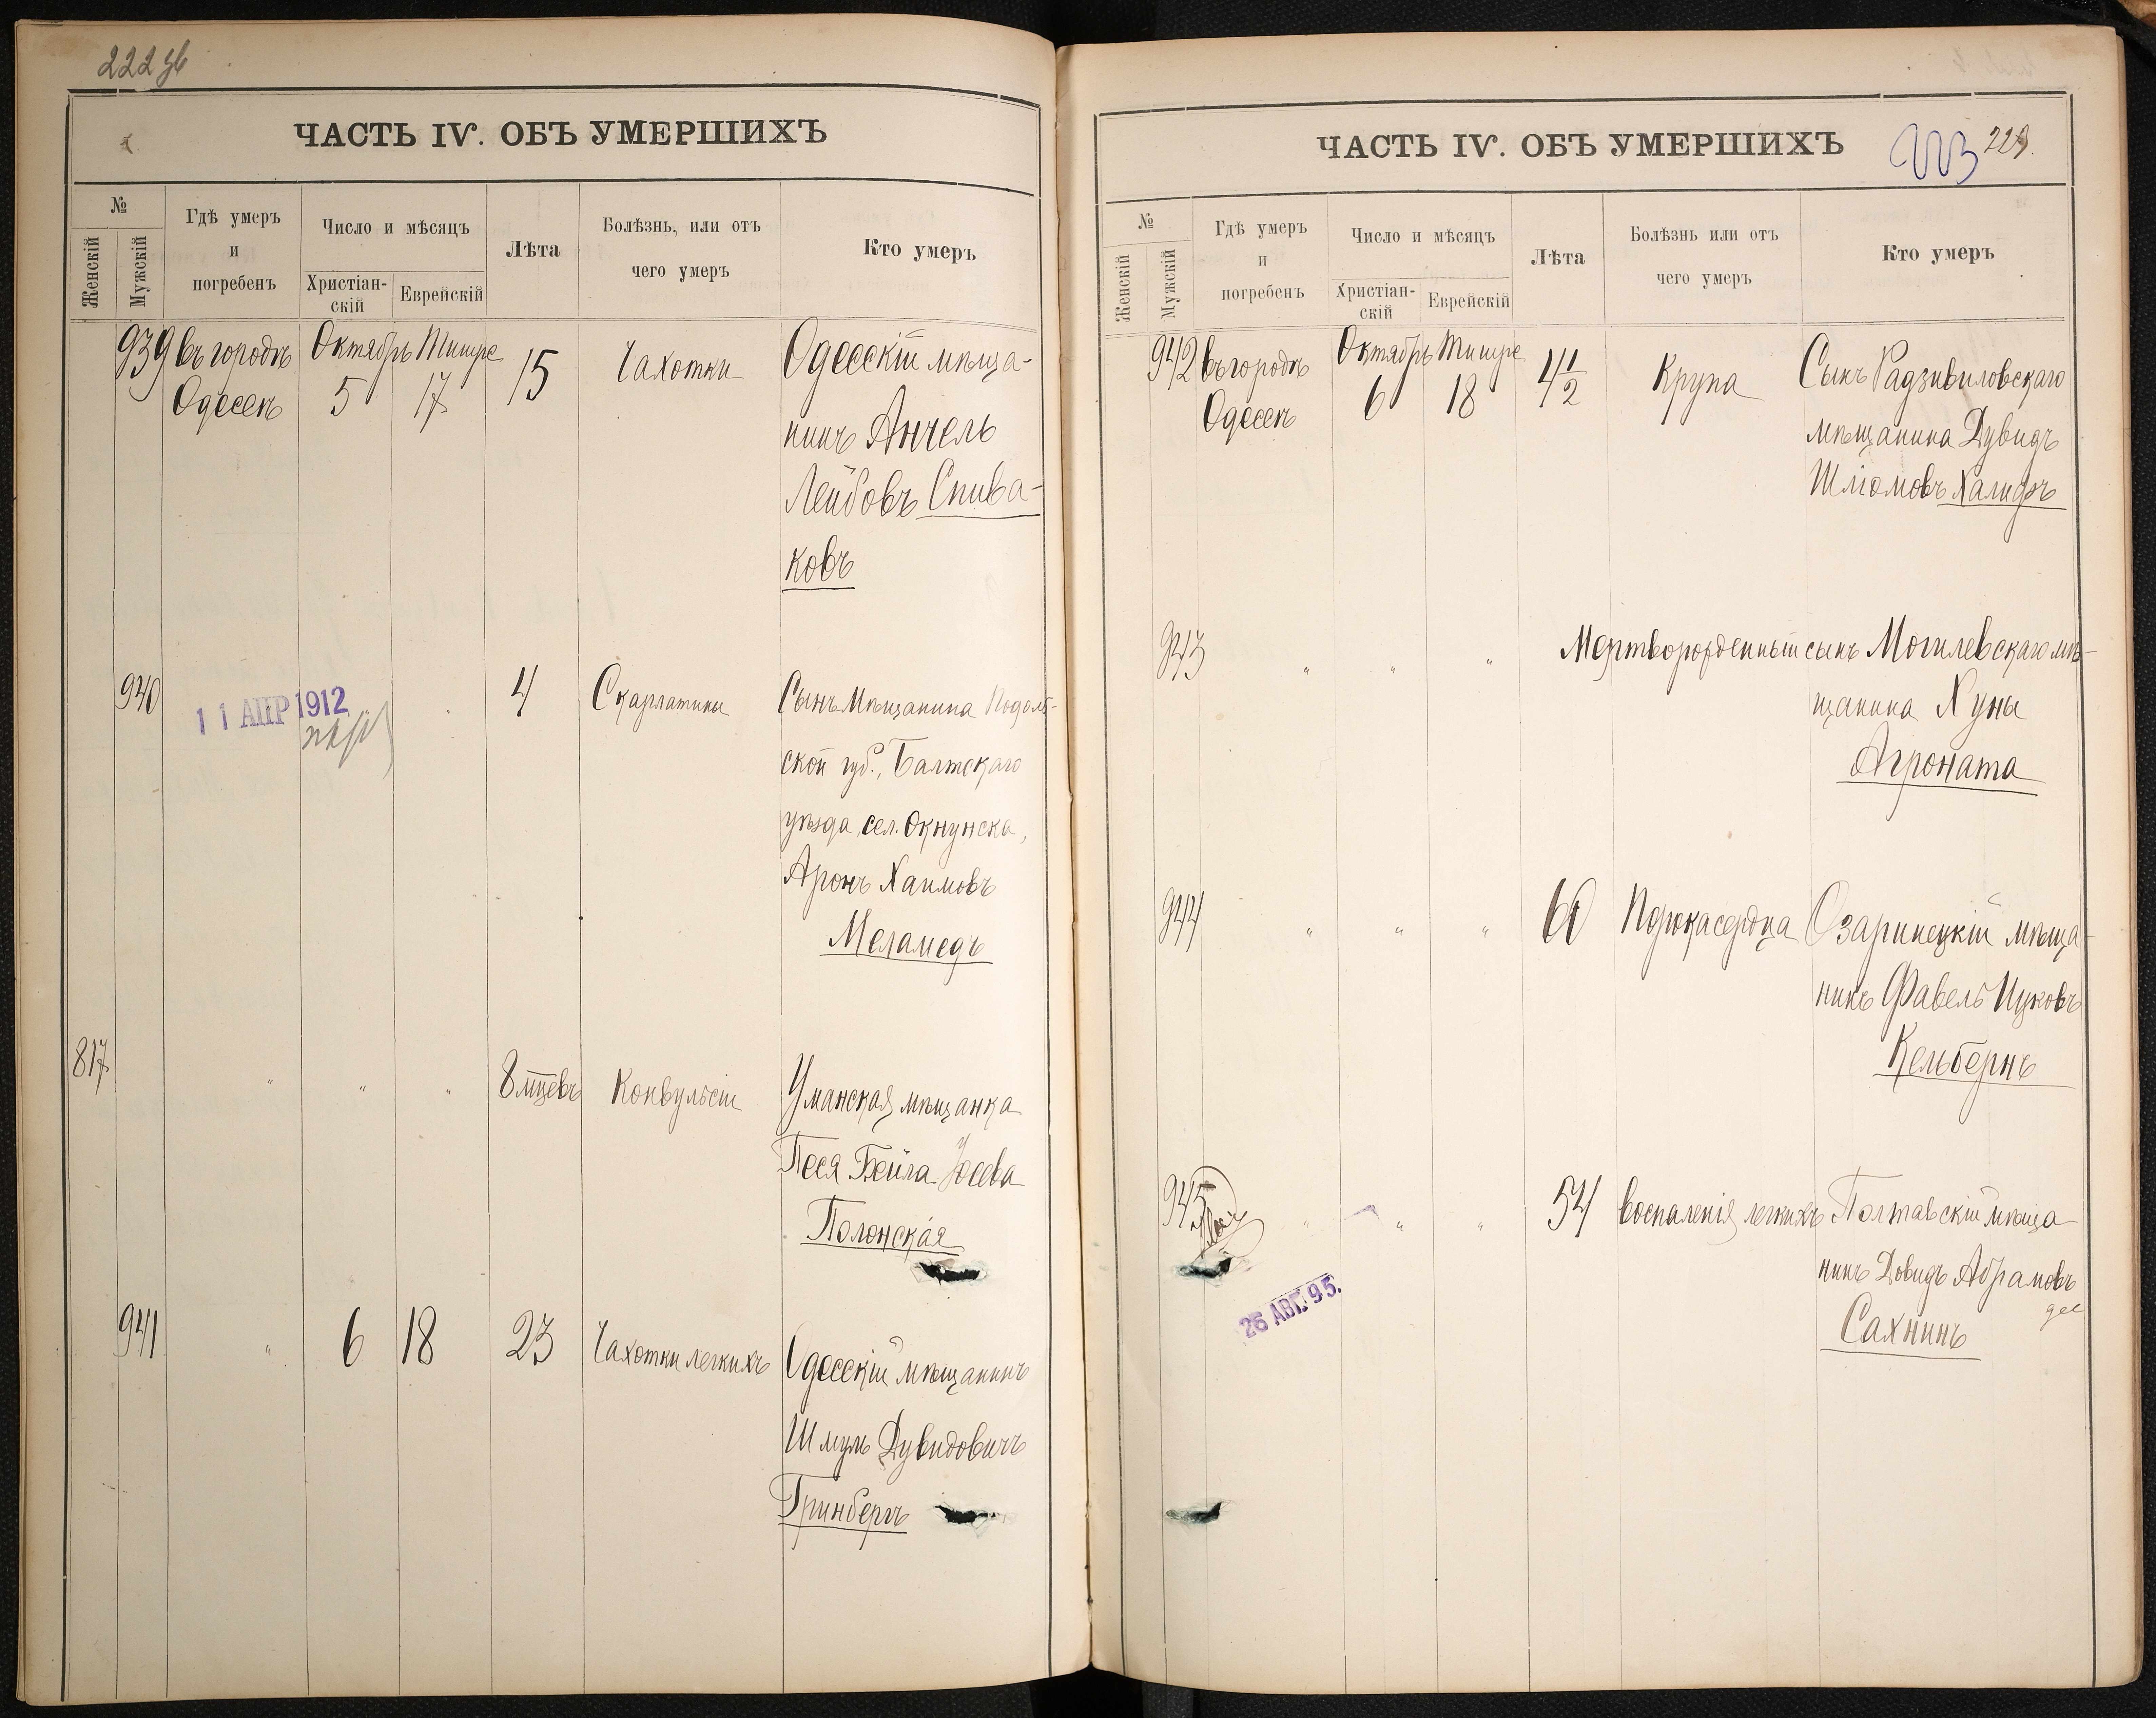 222 об
ЧАСТЬ IV. ОБЪ УМЕРШИХЪ
№
Женскій
Мужскій
Гдѣ умеръ
и
погребенъ
Число и мѣсяцъ
Христіан-
скій
Еврейскій
Лѣта
Болѣзнь, или отъ
чего умеръ
Кто умеръ
939 въ городѣ Октябрь Тишре 15 Чахотки Одесскій мѣща-
Одессѣ 5 17
нинъ Анчель
Лейбовъ Спива-
ковъ
940 4 Скарлатины Сынъ мѣщанина Подоль-
11 АПР 1912
ской губ., Балтскаго
уѣзда, сел. Окнунска,
Аронъ Хаимовъ
Меламедъ
817 " " " 8 мцевъ Конвульсіи Уманская мѣщанка
Песя Бейла Іосева
Полонская
941 " 6 18 23 Чахотки легкихъ Одесскій мѣщанинъ
Шмуль Дувидовичъ
Гринбергъ
ЧАСТЬ IV. ОБЪ УМЕРШИХЪ
223 223.
№
Женскій
Мужскій
Гдѣ умеръ
и
погребенъ
Число и мѣсяцъ
Христіан-
скій
Еврейскій
Лѣта
Болѣзнь или отъ
чего умеръ
Кто умеръ
942 въ городѣ Октябрь Тишре 4 1/2 Крупа Сынъ Радзивиловскаго
Одессѣ 6 18
мѣщанина Дувидъ
Шліомовъ Халифъ
943 " " " Мертворожденный сынъ Могилевскаго мѣ-
щанина Хуны
Агроната
944 " " " 60 Порока сердца Озаринецкій мѣща-
нинъ Фавель Ицковъ
Кельбернъ
945 " " " 54 воспаленія легкихъ Полтавскій мѣща-
нинъ Довидъ Абрамовъ
26 АВГ. 95.
Сахнинъ